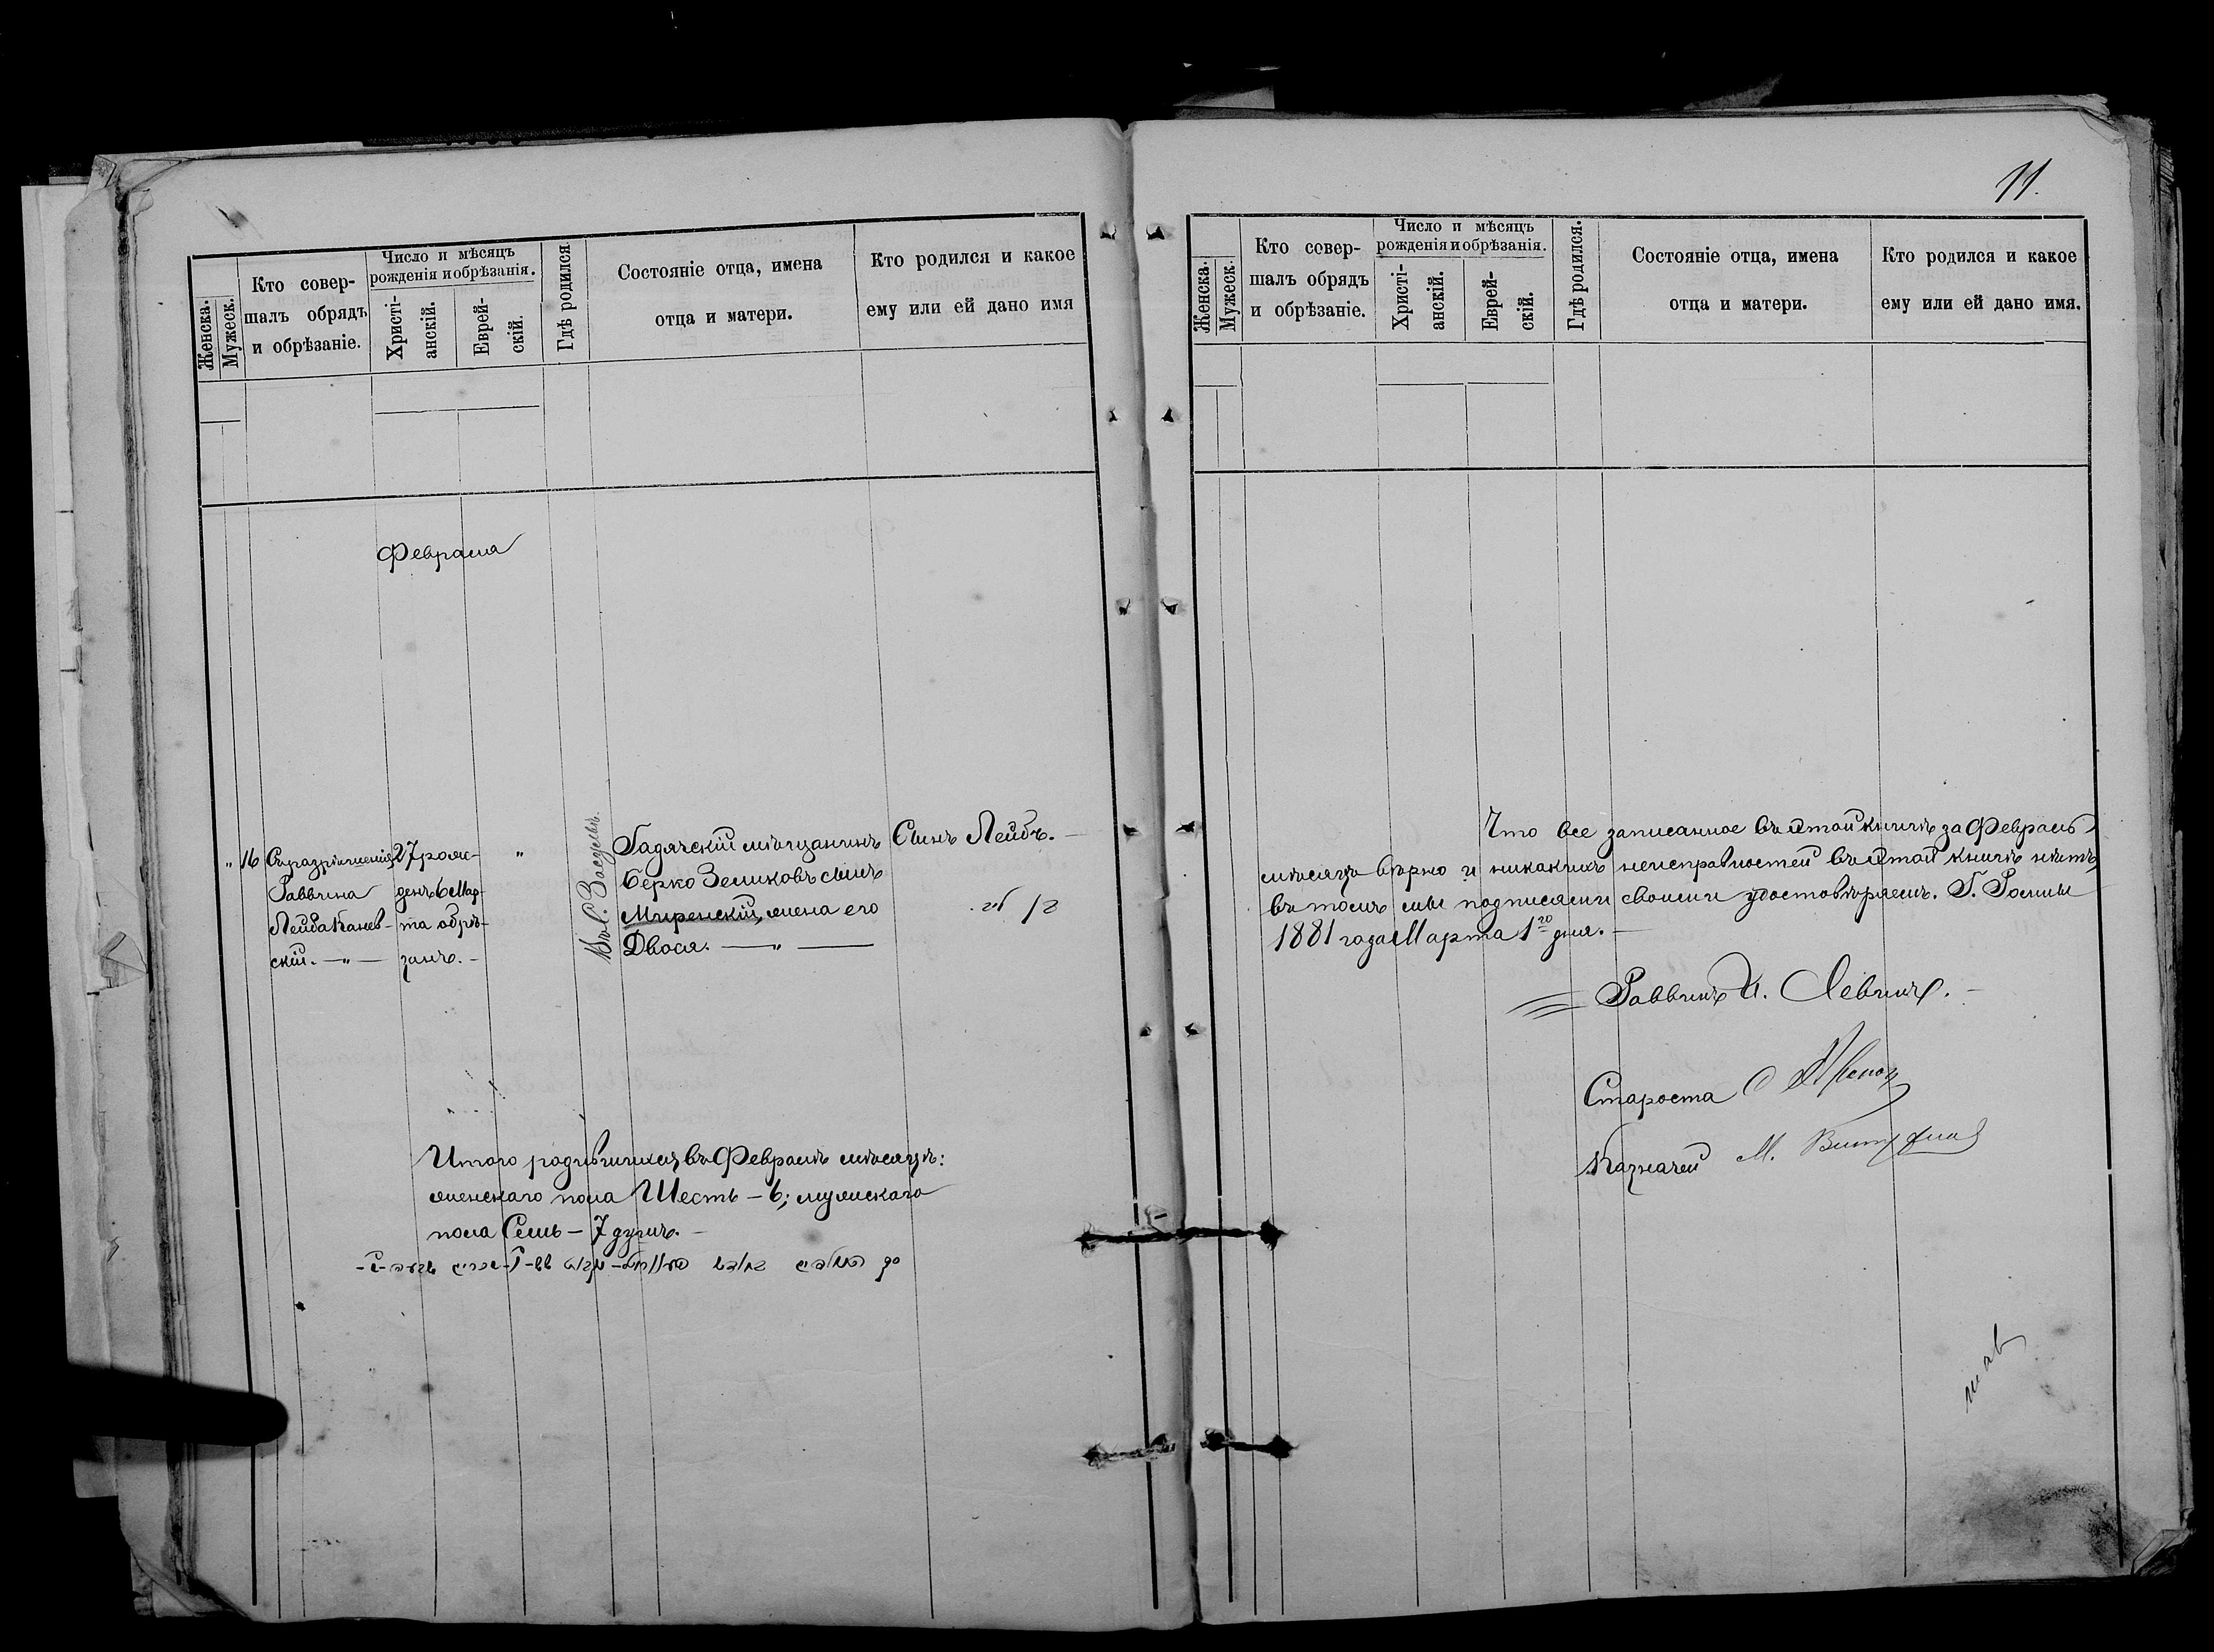 11.
Женска.
Мужеск.
Кто совер-
шалъ обрядъ
и обрѣзаніе.
Число и мѣсяцъ
рожденія и обрѣзанія.
Христі-
анскій.
Еврей-
скій.
Гдѣ родился
Состояніе отца, имена
отца и матери.
Кто родился и какое
ему или ей дано имя
Февраля
" 16
Съ разрѣшенія
Раввина
Лейба Канев-
скій. — " —
27 рож-
денъ 6 Мар-
та обрѣ-
занъ. -
"
Гадячскій мѣщанинъ
Берко Зеликовъ сынъ
Миренскій, жена его
Двося. — " —
Сынъ Лейбъ. -
Итого родившихся въ Февралѣ мѣсяцѣ:
женскаго пола Шесть - 6; мужскаго
пола Семь - 7 душъ. -
Женска.
Мужеск.
Кто совер-
шалъ обрядъ
и обрѣзаніе.
Число и мѣсяцъ
рожденія и обрѣзанія.
Христі-
анскій.
Еврей-
скій.
Гдѣ родился.
Состояніе отца, имена
отца и матери.
Кто родился и какое
ему или ей дано имя.
Что все записанное въ этой книгѣ за Февраль
мѣсяцъ вѣрно и никакихъ неисправностей въ этой книгѣ нѣтъ,
въ томъ мы подписями своими удостовѣряемъ. Г. Ромны
1881 года Марта 1го дня. -
Раввинъ И. Левинъ. -
Староста
Казначей М.